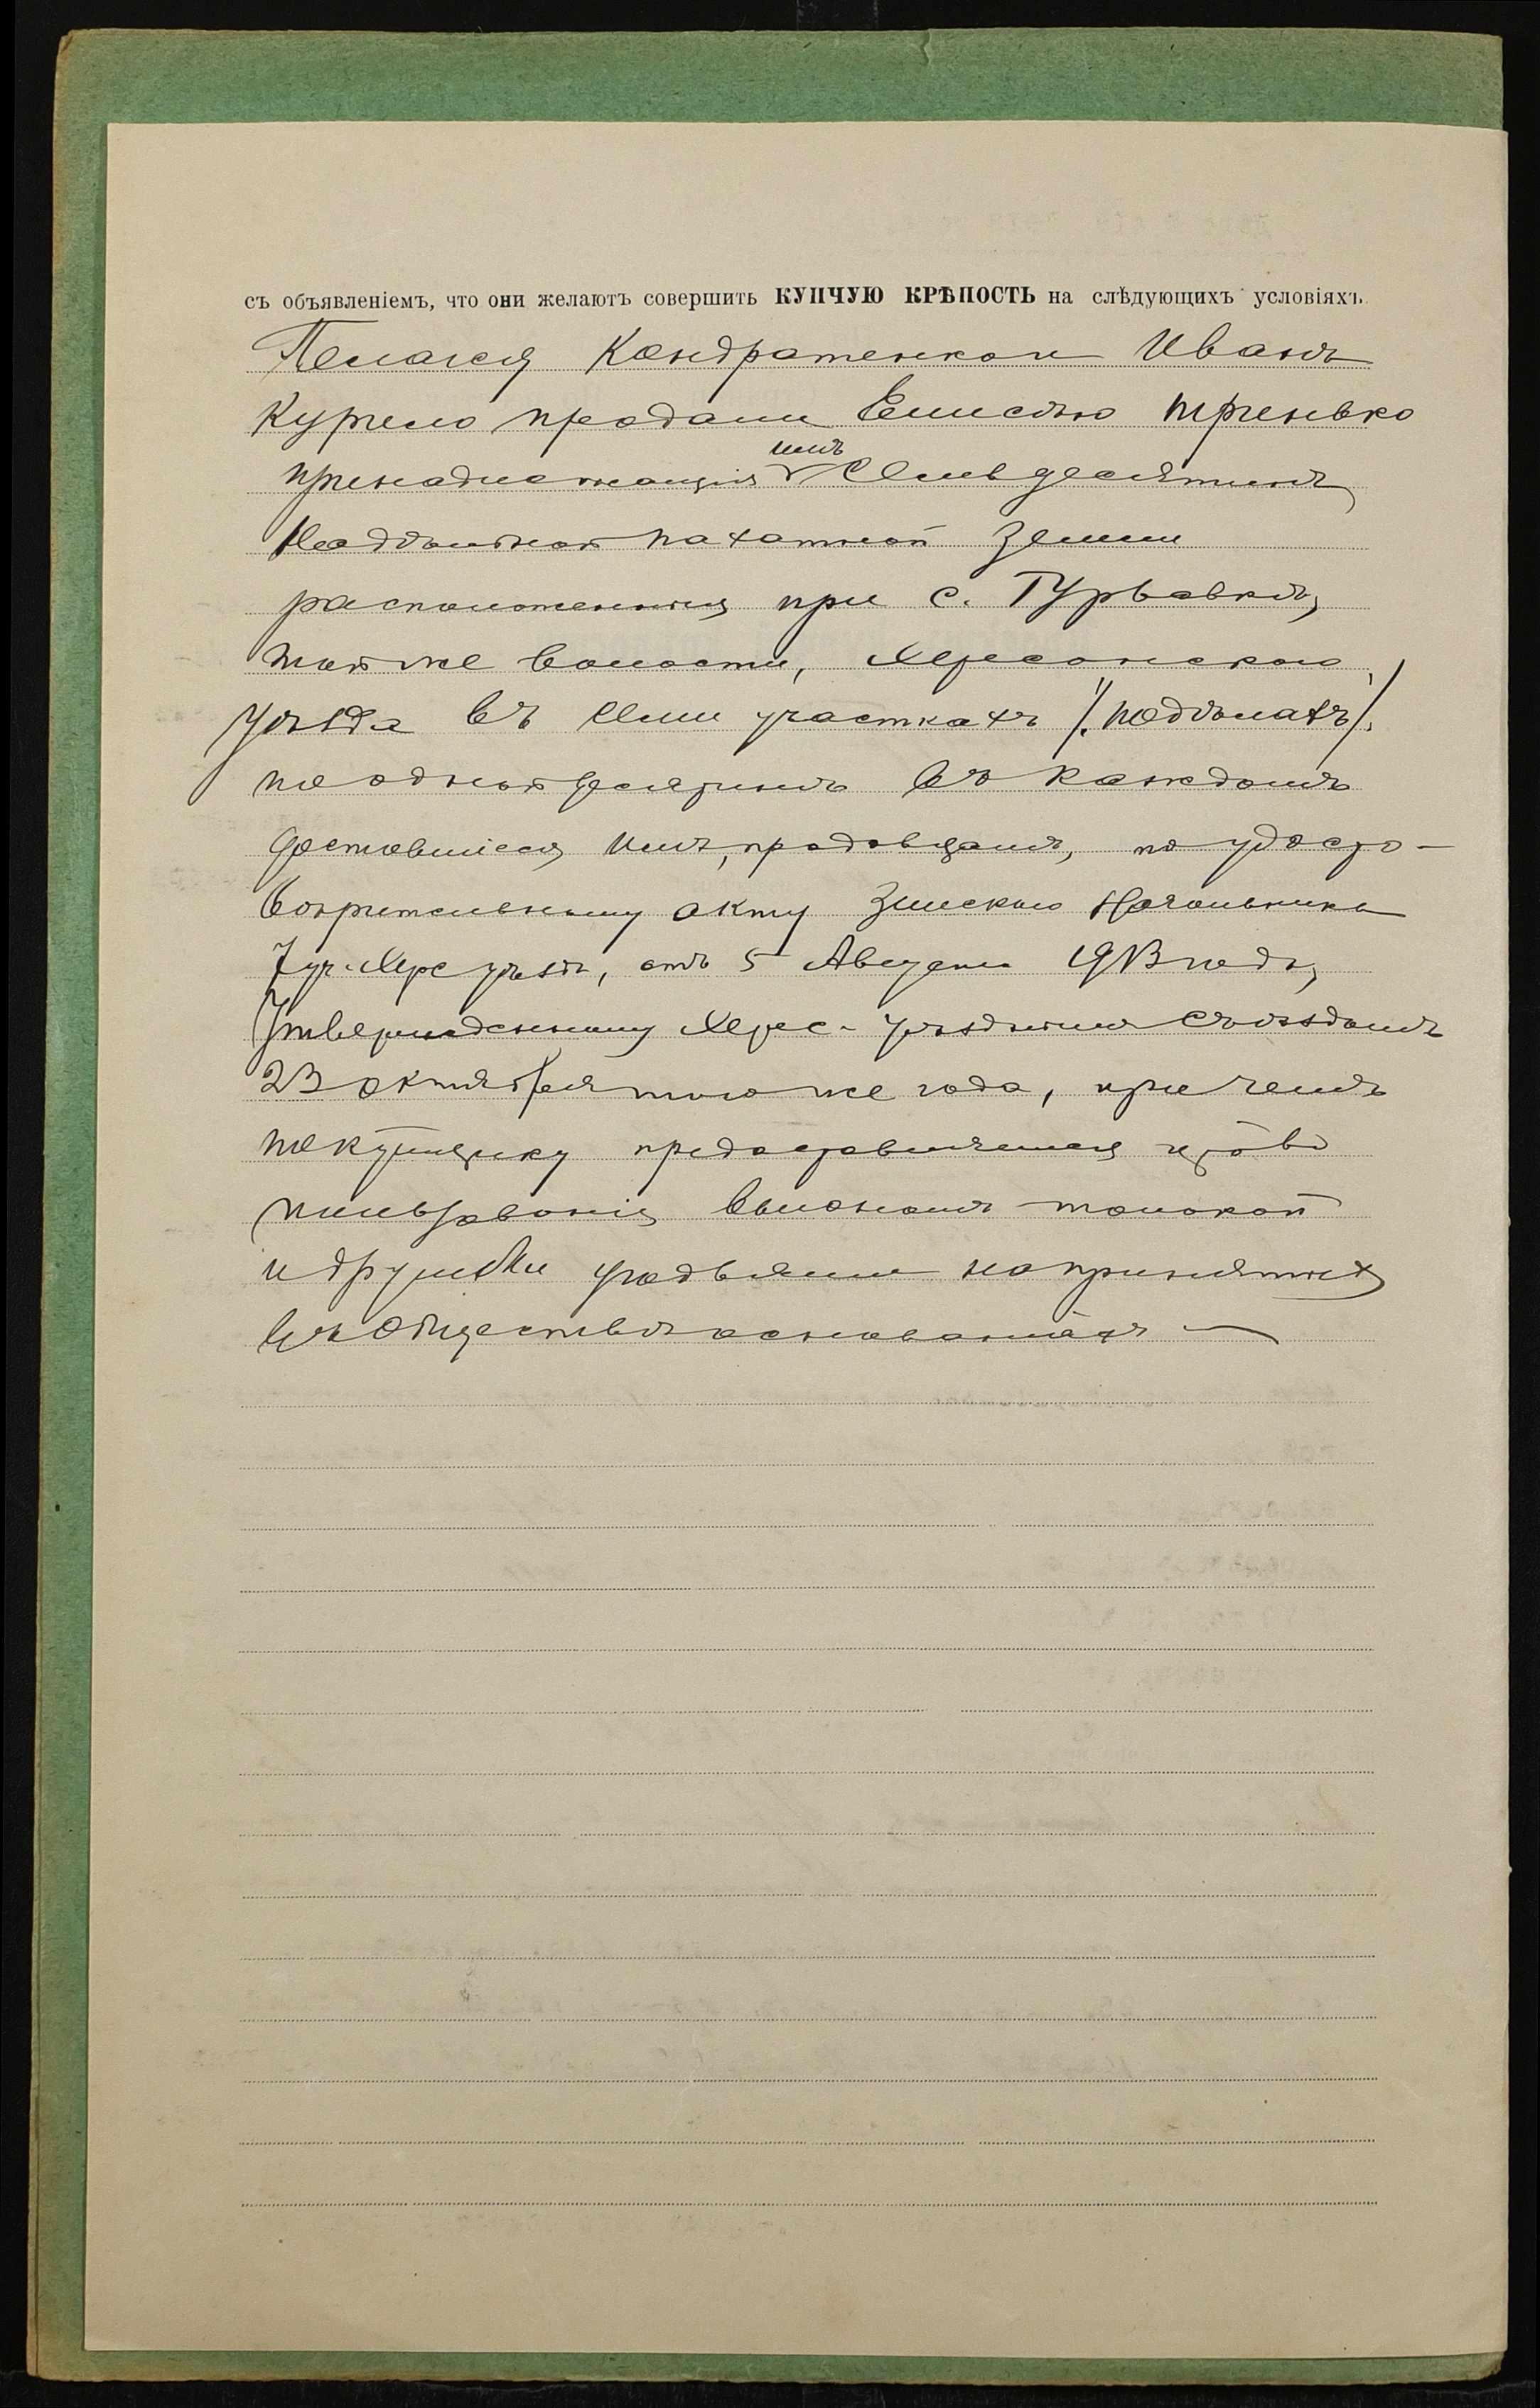 съ объявленіемъ, что они желаютъ совершить КУПЧУЮ КРѢПОСТЬ на слѣдующихъ условіяхъ
Пелагея Кондратенкои Иванъ
продали Елисѣю Гриневко
принадлежащія имъ Семь десятинъ
надѣльной пахатной земли
расположенныя при с. Гурьевкѣ,
той же волости, Херсонскаго
уѣзда въ семи участкахъ /надѣлахъ/,
по одной десятинѣ въ каждомъ
доставшіеся имъ, продавцамъ, по удосто-
вѣрительному акту Земскаго Начальника
7 уч. Херс уѣзда, отъ 5 Августа 1913 года,
Утвержденному Херс- уѣзднымъ съѣздомъ
23 октября того же года, при чемъ
покупщику предоставляется право
пользованія выгономъ толокой
и другими угодьями на принятыхъ
въ обществѣ основаніяхъ —